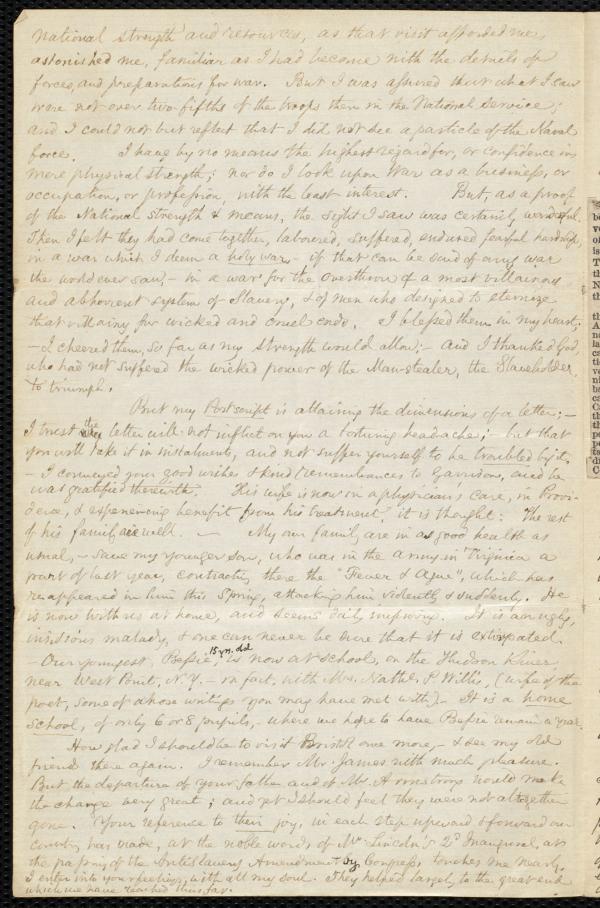 National strength and resources, as that visit afforded me,
astonished me, familiar as I had become with the details of
forces, and preparations for war. But I was assured that what I saw
were not over two-fifths of the troops then in the National service;
and I could not but reflect that I did not see a particle of the Naval
force. I have by no means the highest regard for, or confidence in
mere physical strength; nor do I look upon War as a business, or
occupation, or profession, with the least interest. But, as a proof
of the National strength & means, the sight I saw was certainly wonderful.
Then I felt they had come together, laboured, suffered, endured fearful hardship,
in a war which I deem a holy war – if that can be said of any war
the world ever saw, – in a war for the overthrow of a most villainous
and abhorrent system of Slavery, & of men who designed to eternize
that villainy for wicked and cruel ends. I blessed them in my heart;
– I cheered them, so far as my strength would allow; – and I thanked God,
who had not suffered the wicked power of the Man-stealer, the Slaveholder,
to triumph.
But my Postscript is attaining the dimensions of a letter; –
I trust the letter will not inflict on you a torturing headache; – but that
you will take it in instalments, and not suffer yourself to be troubled by it.
– I conveyed your good wishes & kind remembrances to Garrisons, and he
was gratified therewith. His wife is now in a physician's care, in Provi-
dence, & experiencing benefit from his treatment, it is thought. The rest
of his family are well. – My own family are in as good health as
usual, – save my younger son, who was in the army in Virginia a
part of last year, contracting there the "Fever & Ague", which has
reappeared in him this Spring, attacking him violently & suddenly. He
is now with us at home, and seems daily improving. It is an ugly,
insidious malady, & one can never be sure that it is extirpated.
– Our youngest, Bessie, 15 yrs. old is now at school, on the Hudson River,
near West Point, N.Y. – in fact, with Mrs. Nathl. P. Willis, (wife of the
poet, some of whose writings you may have met with). – It is a home
school, of only 6 or 8 pupils, – where we hope to have Bessie remain a year.
How glad I should be to visit Bristol once more, – & see my old
friends there again. I remember Mr. James with much pleasure.
But the departure of your father and of Mr. Armstrong would make
the change very great; and yet I should feel they were not altogether
gone. Your reference to their joy, in each step upward & forward our
country has made, at the noble words of Mr. Lincoln's 2d Inaugural, at
the passing of the Antislavery Amendment by Congress, touches me nearly.
I enter into your feelings, with all my soul. They helped largely to the great end
which we have reached thus far.